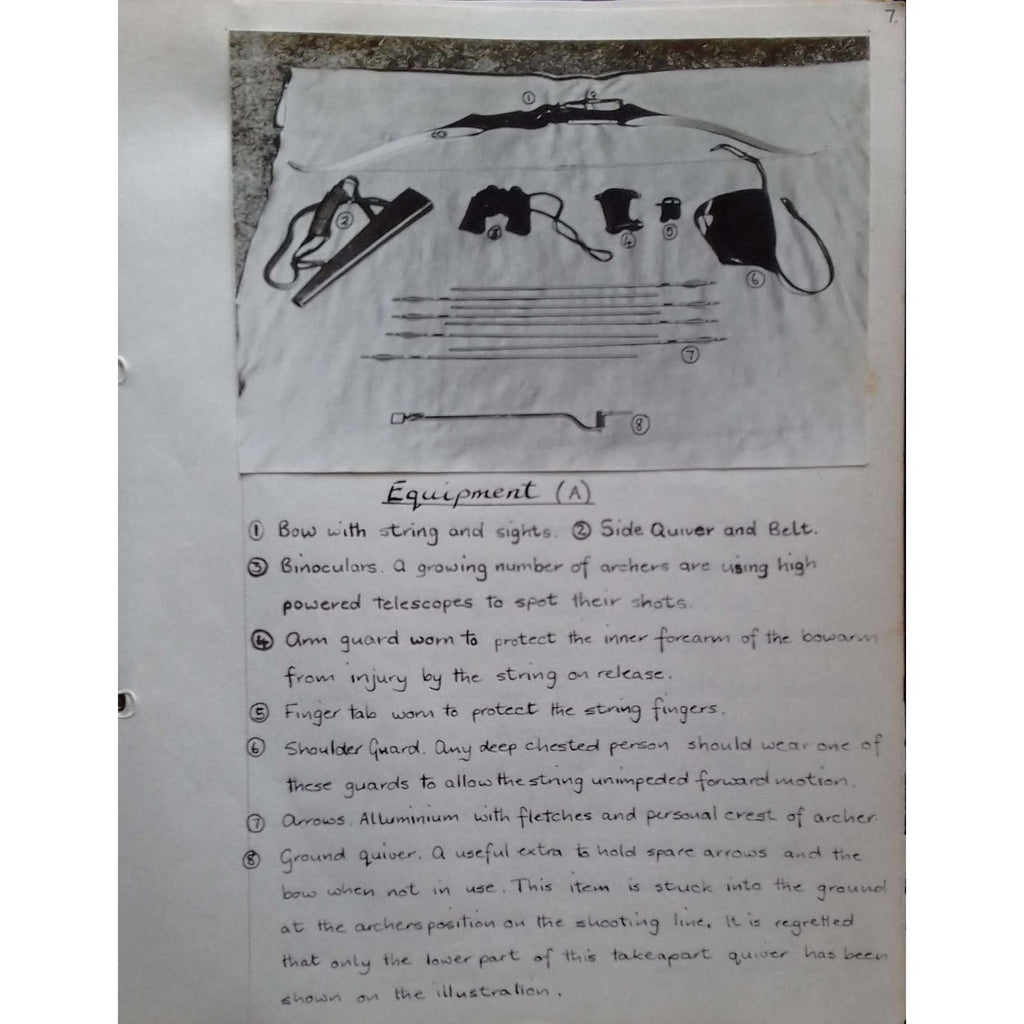 7.
①
②
③
④
⑤
⑥
⑦
⑧
Equipment (A)
① Bow with string and sights. ② Side Quiver and Belt.
③ Binoculars. A growing number of archers are using high
powered telescopes to spot their shots.
④ Arm guard worn to protect the inner forearm of the bowarm
from injury by the string on release.
⑤ Finger tab worn to protect the string fingers.
⑥ Shoulder Guard. Any deep chested person should wear one of
these guards to allow the string unimpeded forward motion.
⑦ Arrows. Alluminium with fletches and personal crest of archer.
⑧ Ground quiver. A useful extra to hold spare arrows and the
bow when not in use. This item is stuck into the ground
at the archers position on the shooting line. It is regretted
that only the lower part of this takeapart quiver has been
shown on the illustration.